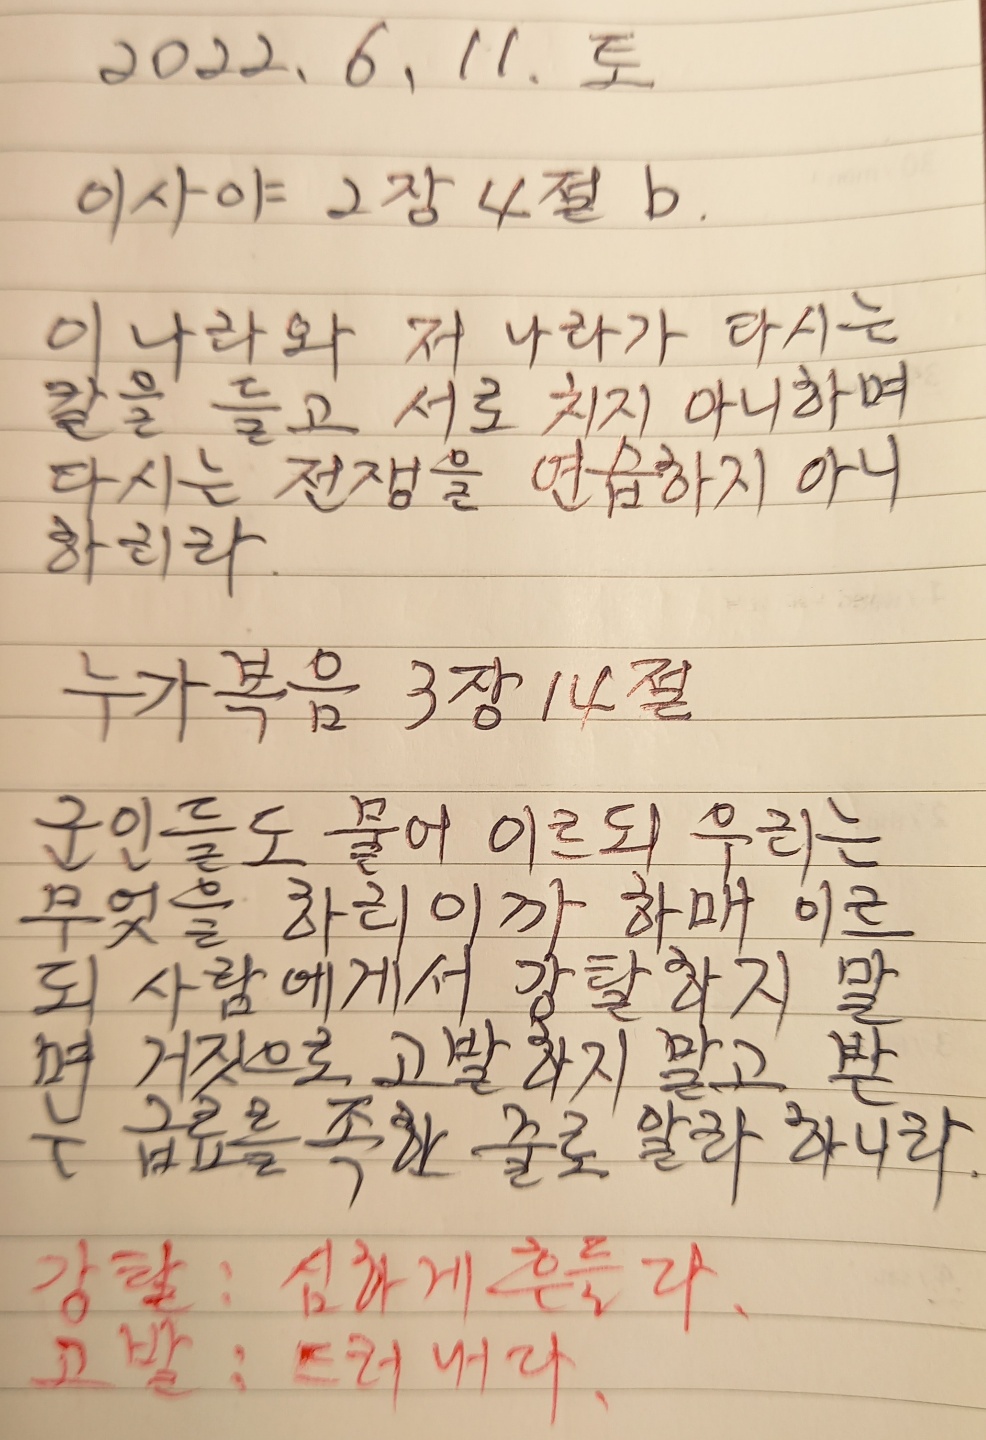 2022. 6. 11. 토
이사야 2장 4절 b.
이 나라와 저 나라가 다시는
칼을 들고 서로 치지 아니하며
다시는 전쟁을 연습하지 아니
하리라.
누가복음 3장 14절
군인들도 물어 이르되 우리는
무엇을 하리이까 하매 이르
되 사람에게서 강탈하지 말
며 거짓으로 고발하지 말고 받
는 급료를 족한 줄로 알라 하니라.
강탈 : 심하게 흔들다.
고발 : 드러내다.